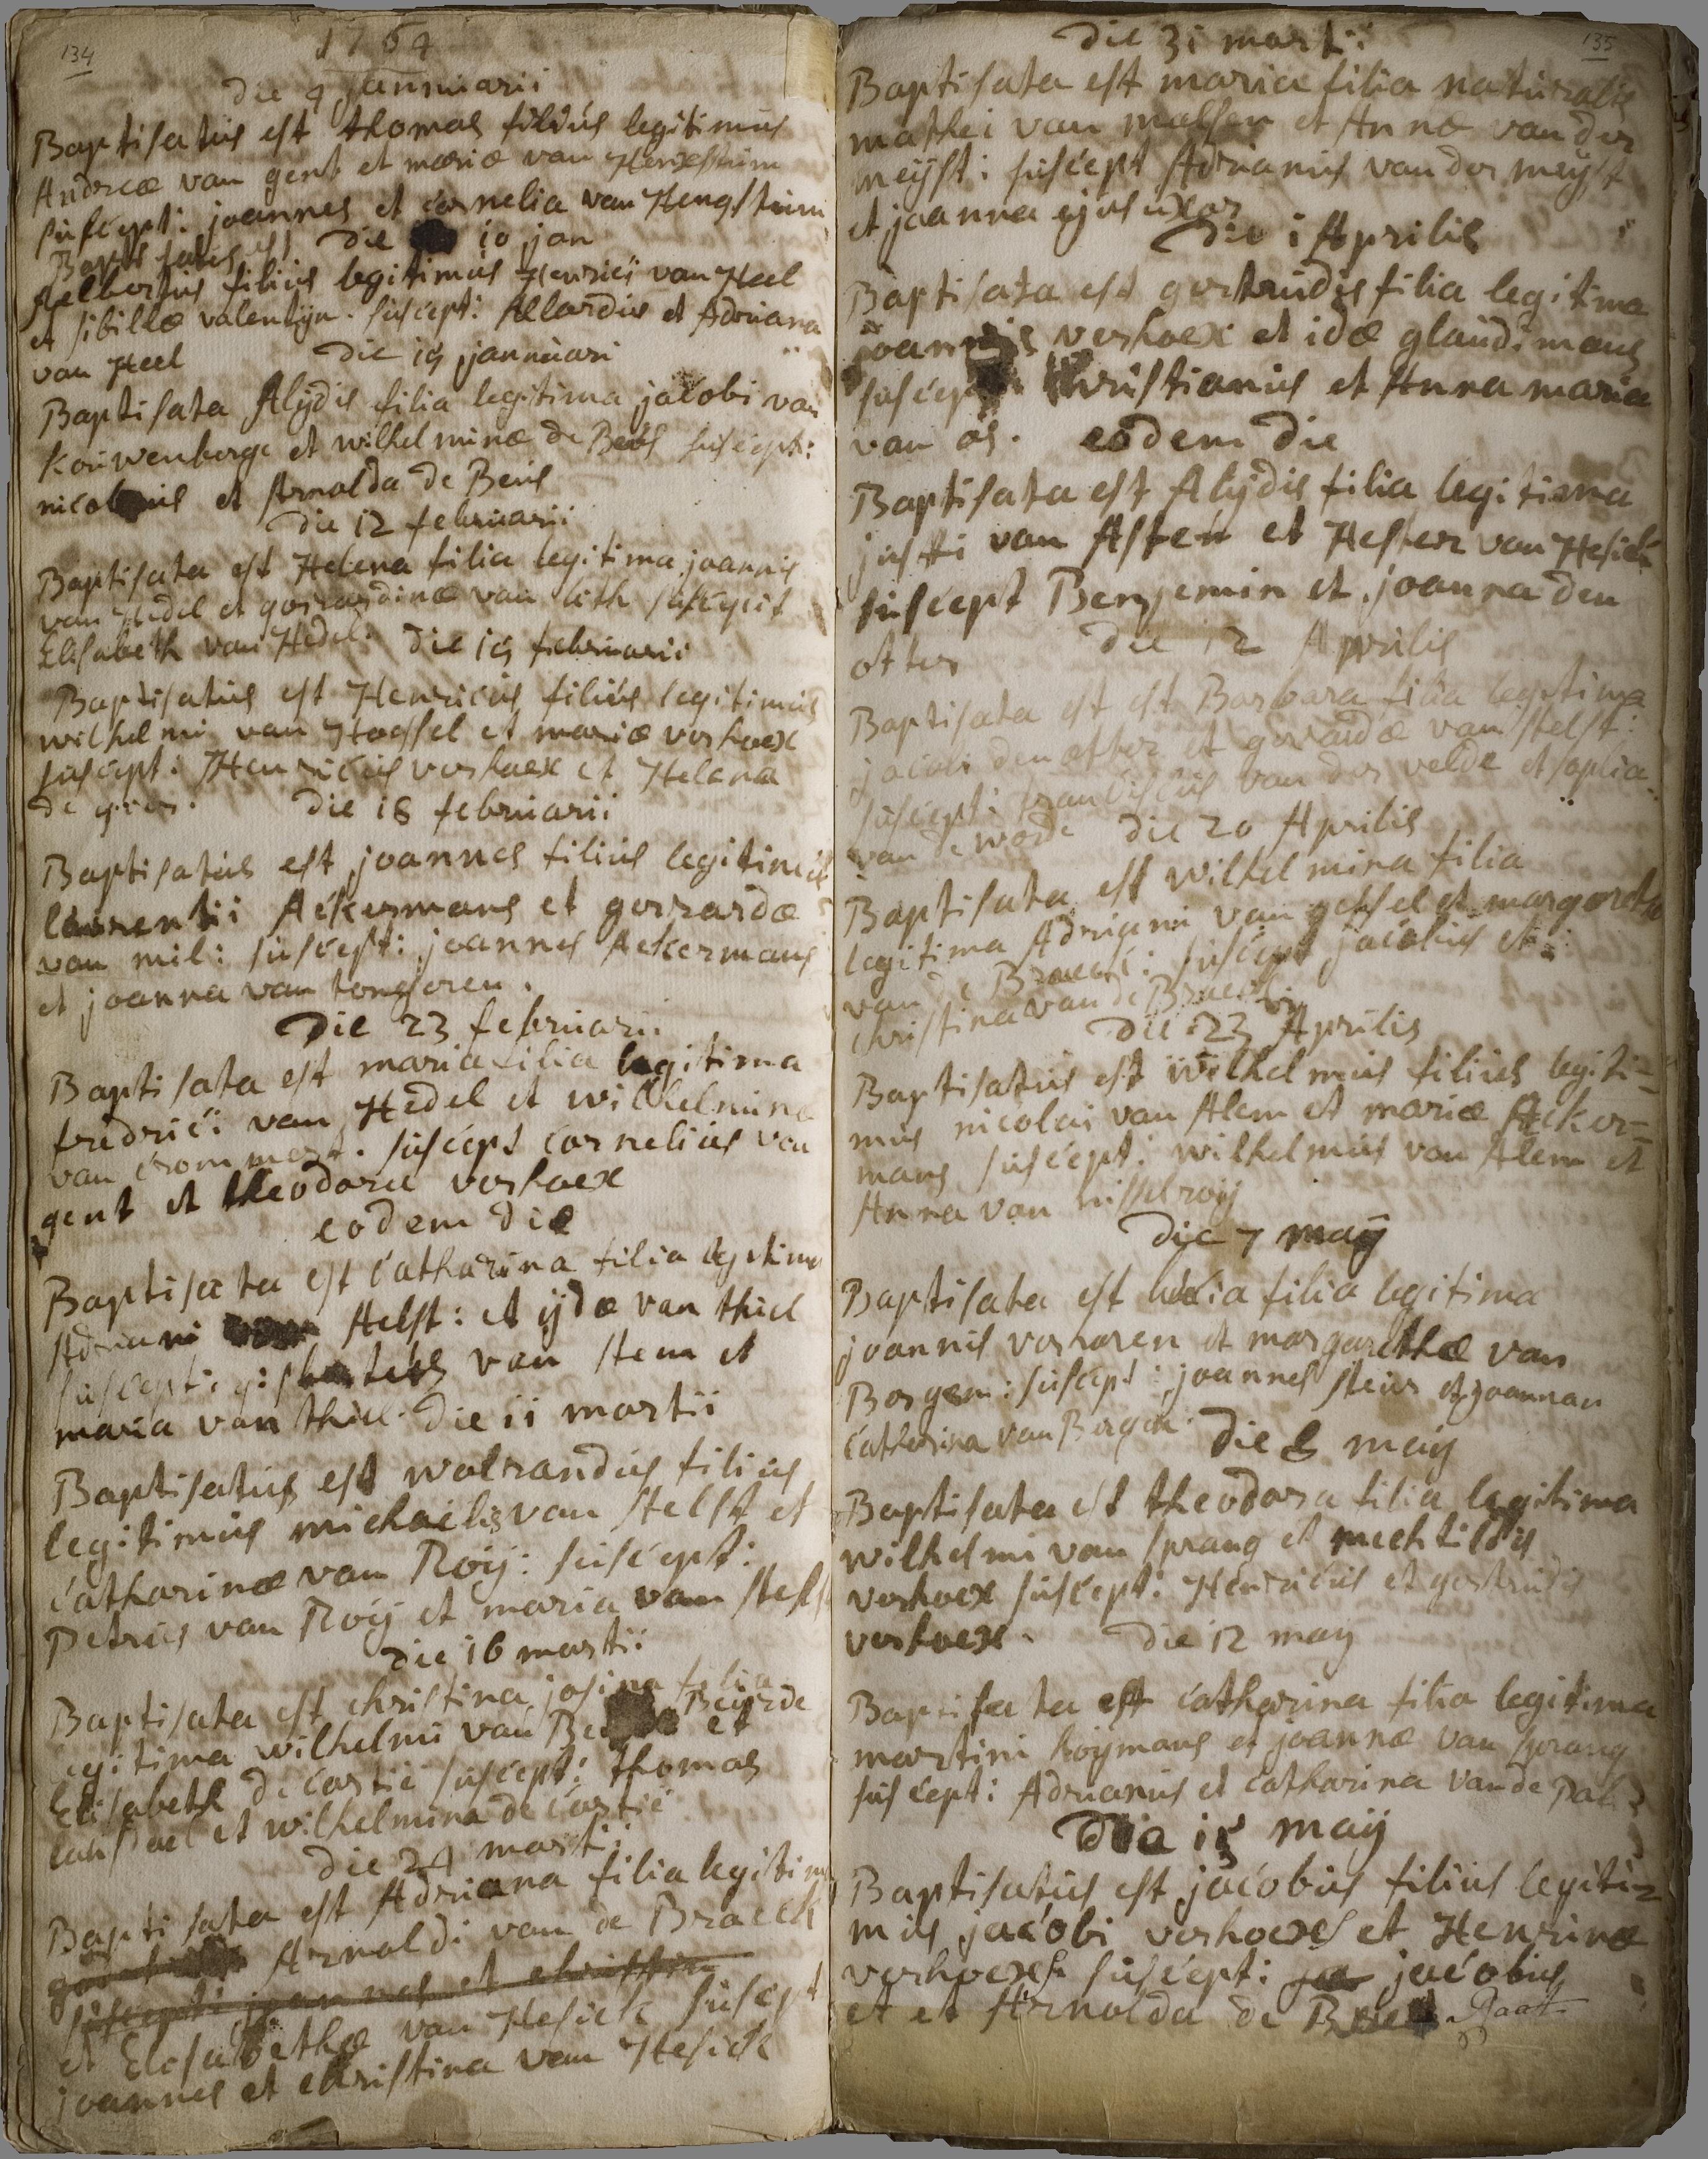 134
1764
die 9 Januuarii
Baptisatus est thomas filius legitimus
Andreæ van gent et mariæ van
suscept: joannes et cornelia van Hengstum
Baptisatus est die 10 jan
Aelbertus filius legitimus Henrici van Heel
et sibillæ valentijn. suscept: Allardus et Adriana
van Heel die 19 jannuari
Baptisata Alijdis filia legitima jacobi van
kouwenberge et wilhelminæ de Beus suscept:
nicolaus et Arnolda de Beus
die 12 februarii
Baptisata est Helena filia legitima joannis
van Hedel et gerardinæ van lith suscepit
Elisabeth van Hedel. die 15 februarii
Baptisatus est Henricus filius legitimus
wilhelmi van Hoessel et mariæ verhoex
suscept: Henricus verhoex et Helena
de die 18 februarii
Baptisatus est joannes filius legitimus
laurentii Ackermans et gerrardæ
van mil: suscept: joannes Ackermans
et joanna van tongeren.
Die 23 februari
Baptisata est maria filia legitima
fredrici van Hedel et wilhelmina
van crommert. suscept cornelius van
gent et theodora verhoex
eodem die
Baptisata est catharina filia legitima
Adriani Helst: et ijdæ van thiel
suscept: gisbertus van stem et
maria van thiel. die 11 martii
Baptisatus est walrandus filius
legitimus michaelis van Helst et
catharinæ van Roij: suscept:
Petrus van Roij et maria van Helst
die 16 martii
Baptisata est christina josina filia
legitima wilhelmi van Beurde et
Elisabeth de cartie suscept: thomas
lanspael et wilhelmina de cartie
die 24 martii
Baptisata est Adriana filia legitim
Arnoldi van de Braeck
suscept: joannes et christina
et Elesabethæ van Hesick suscept
joannes et christina van Hesick
135
die 31 martii
Baptisata est maria filia naturalis
mathei van malsen et Annæ van der
meijst: suscept Adrianus van der meijst
et joanna ejus uxor
die 1 Aprilis
Baptisata est gertrudis filia legitima
joannis verhoex et idæ glaudimans
suscept: christianus et Anna maria
van os. eodem die
Baptisata est Alijdis filia legitima
justi van Asten et Hester van Hesick
suscept Benjemin et joanna den
otter die 12 Aprilis
Baptisata est est Barbara filia legitima
jacobi den otter et gerardæ van Helst:
suscept: franciscus van der velde et sophia
van de werde die 20 Aprilis
Baptisata est wilhelmina filia
legitima Adriani van gessel et margaretæ
van de Braeck: suscept jacobus et
christina van de Braeck
die 23 Aprilis
Baptisatus est wilhelmus filius legiti=
mus nicolai van Alem et mariæ Acker=
mans suscept: wilhelmus van Alem et
Anna van nisselroij
die 7 maij
Baptisata est lucia filia legitima
joannis verroren et margarethæ van
Bergen: suscept: joannes steivs et joannan
catharina van Bergen. die 8 maij
Baptisata est theodora filia legitima
wilhelmi van sprang et mechtildis
verhoex suscept: Henricus et gertrudis
verhoex. die 12 maij
Baptisata est catharina filia legitima
martini koijmans et joannæ van sprang
suscept: Adrianus et catharina van de Pal
Die 15 maij
Baptisatus est jacobus filius legiti=
mus jacobi verhoexs et Henrinæ
verhoexs suscept: ja jacobus
et et Arnolda de Raat